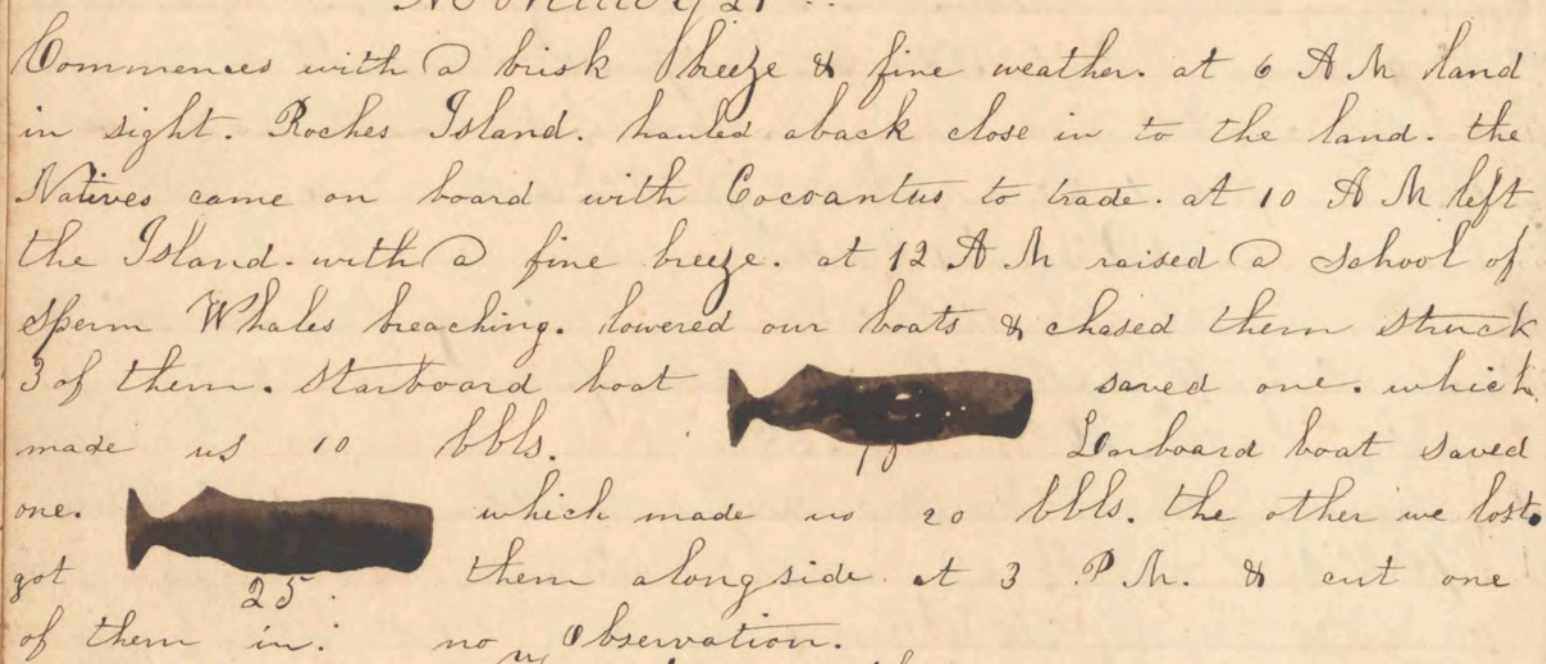 Commences with a brisk breeze & fine weather. at 6 A M land
in sight. Roches Island. hauled aback close in to the land. the
Natives came on board with Cocoantus to trade. at 10 A M left
the Island. with a fine breeze. at 12 A M raised a School of
Sperm Whales breaching. lowered our boats & chased them struck
3 of them. Starboard boat saved one. which
made us 10 bbls. Larboard boat saved
10
one. which made us 20 bbls. the other we lost.
got them alongside at 3 P M. & cut one
25
of them in. no Observation.